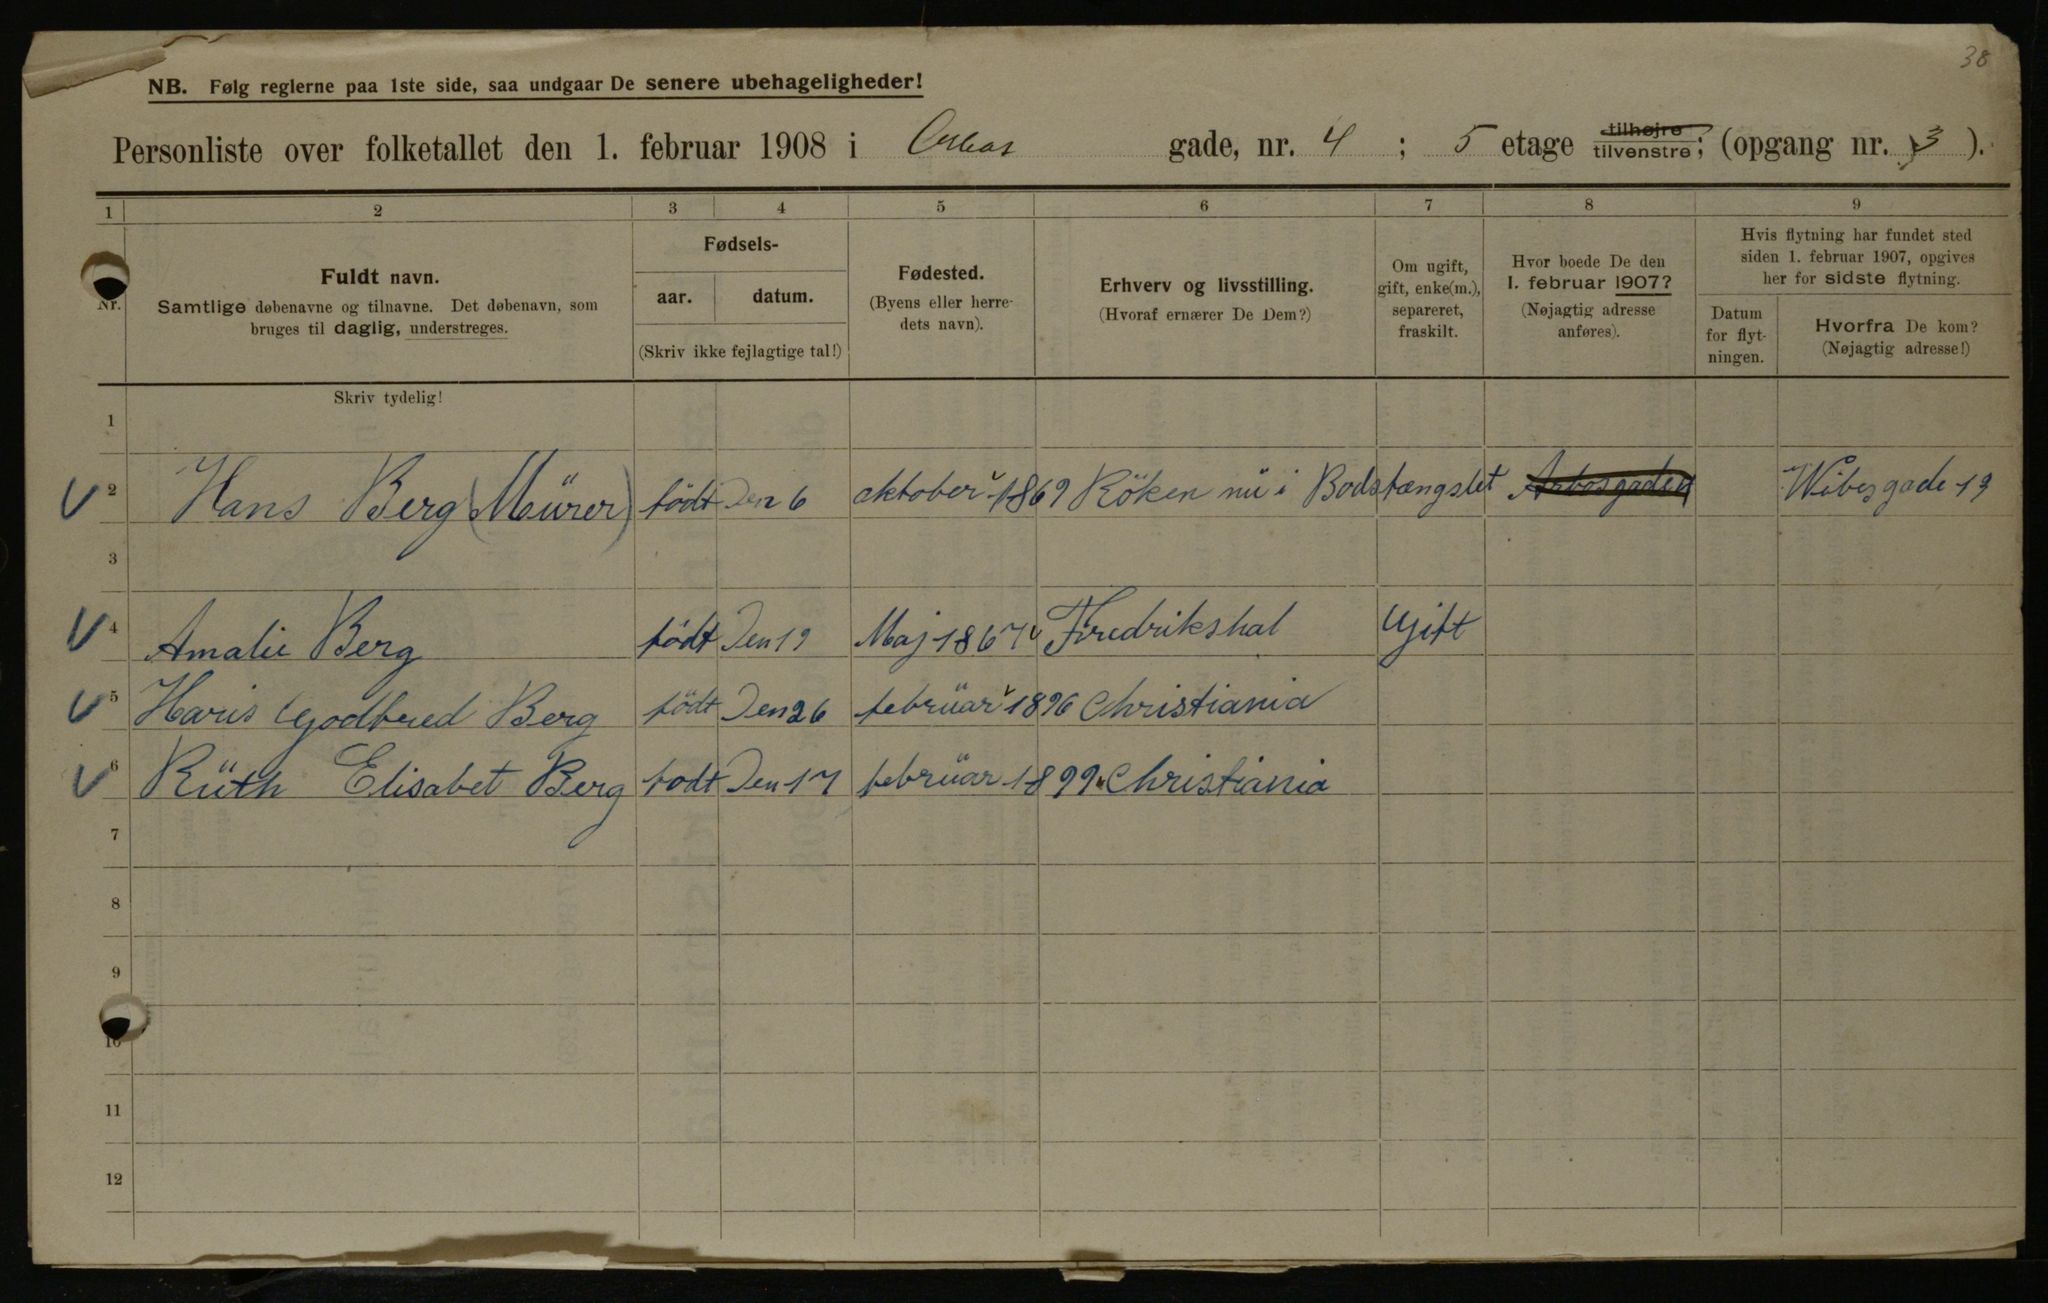 38
NB. Følg reglerne paa 1ste side, saa undgaar De senere ubehageligheder!
Personliste over folketallet den 1. februar 1908 i gade, nr. 4 ; 5 etage tilhøjre tilvenstre; (opgang nr. 3 ).
1 2 3 4 5 6 7 8 9
Nr.
Fuldt navn.
Samtlige døbenavne og tilnavne. Det døbenavn, som
bruges til daglig, understreges.
Fødsels-
aar. datum.
(Skriv ikke fejlagtige tal!)
Fødested.
(Byens eller herre-
dets navn).
Erhverv og livsstilling.
(Hvoraf ernærer De Dem?)
Om ugift,
gift, enke(m.),
separeret,
fraskilt.
Hvor boede De den
1. februar 1907?
(Nøjagtig adresse
anføres).
Hvis flytning har fundet sted
siden 1. februar 1907, opgives
her for sidste flytning.
Datum
for flyt-
ningen.
Hvorfra De kom?
(Nøjagtig adresse!)
Skriv tydelig!
1
2 Hans Berg (Mürer) födt Den 6 oktober 1869 Röken nü i Bodsfængslet Arbosgaden Wibesgade 19
3
4 Amalie Berg födt Den 19 Maj 1867 Fredrikshal Gift
5 Haris Godtfred Berg födt Den 26 februar 1896 Christiania
6 Rüth Elisabet Berg fodt Den 17 februar 1899 Christiania
7
8
9
10
11
12